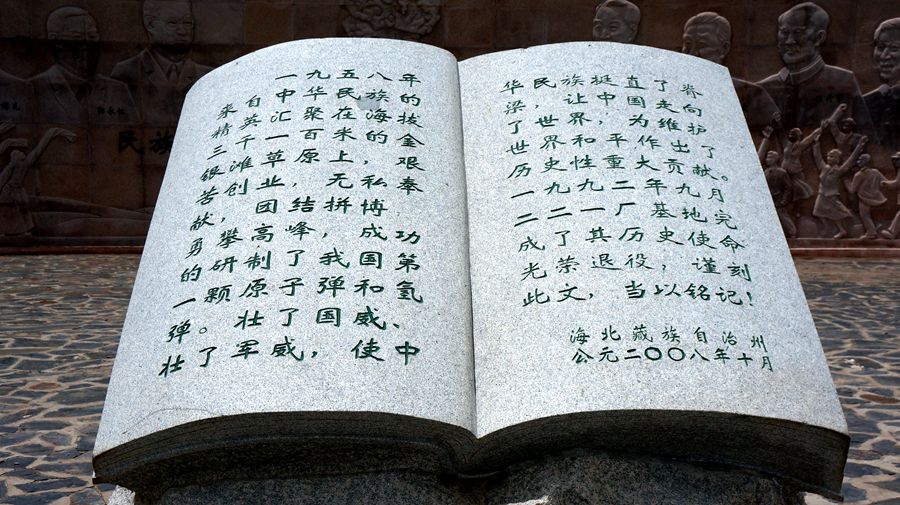 一九五八年
来自中华民族的
精英汇聚在海拔
三千一百米的金
银滩草原上，艰
苦创业，无私奉
献，团结拼博
勇攀高峰，成功
的研制了我国第
一颗原子弹和氢
弹。壮了国威、
壮了军威，使中
华民族挺直了脊
梁，让中国走向
了世界，为维护
世界和平作出了
历史性重大贡献。
一九九二年九月
二二一厂基地完
成了其历史使命
光荣退役，谨刻
此文，当以铭记！
海北藏族自治州
公元二〇〇八年十月
民族